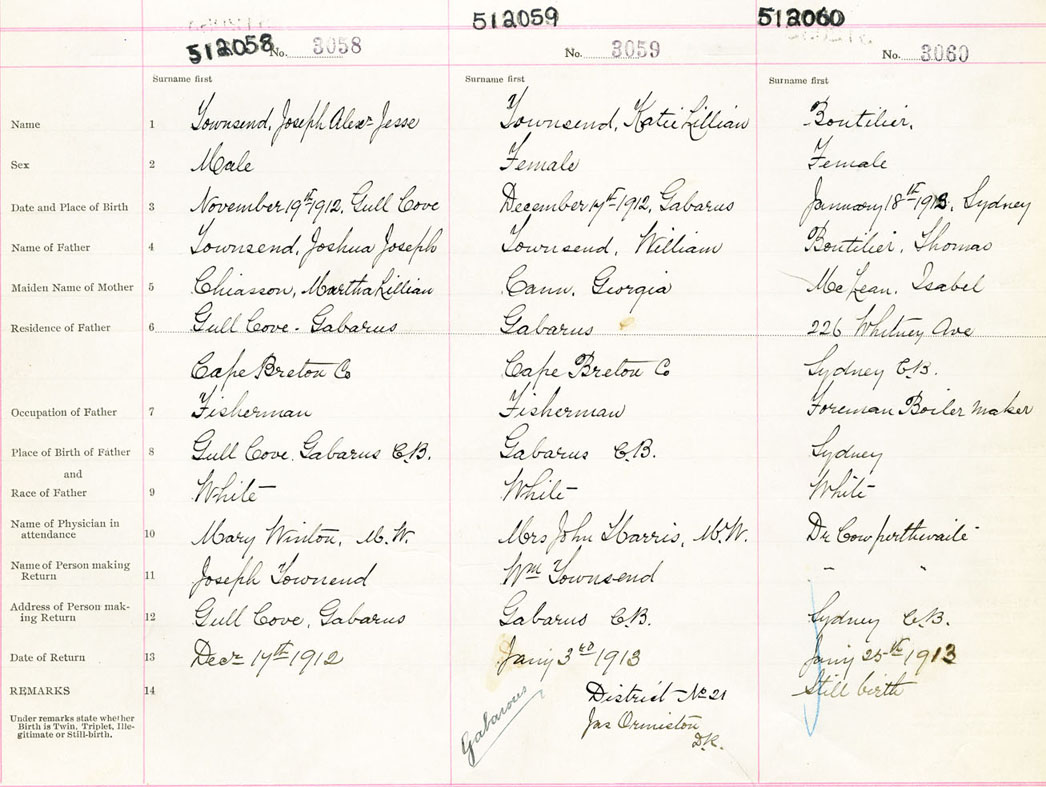 512058 No. 3058
512059 No. 3059
512060 No. 3060
Surname first Surname first Surname first
Name 1 Townsend, Joseph Alexr Jesse Townsend, Katie Lillian Boutilier,
Sex 2 Male Female Female
Date and Place of Birth 3 November 19th 1912, Gull Cove December 17th 1912, Gabarus January 18th 1913, Sydney
Name of Father 4 Townsend, Joshua Joseph Townsend, William Boutilier, Thomas
Maiden Name of Mother 5 Chiasson, Martha Lillian Cann, Georgia McLean, Isabel
Residence of Father 6 Gull Cove - Gabarus Gabarus 226 Whitney Ave
Cape Breton Co Cape Breton Co Sydney C.B.
Occupation of Father 7 Fisherman Fisherman Foreman Boiler maker
Place of Birth of Father 8 Gull Cove, Gabarus C.B. Gabarus C.B. Sydney
and
Race of Father 9 White White White
Name of Physician in
attendance 10 Mary Winton, M.W. Mrs John Harris, M.W. Dr Cowperthwaite
Name of Person making
Return 11 Joseph Townend Wm Townsend - "
Address of Person mak-
ing Return 12 Gull Cove, Gabarus Gabarus C.B. Sydney C.B.
Date of Return 13 Decr 17th 1912 Jany 3rd 1913 Jany 25th 1913
REMARKS 14 District No 21 Still birth
Under remarks state whether
Birth is Twin, Triplet, Ille-
gitimate or Still-birth.
Gabarous
Jas Ormiston
D.R.